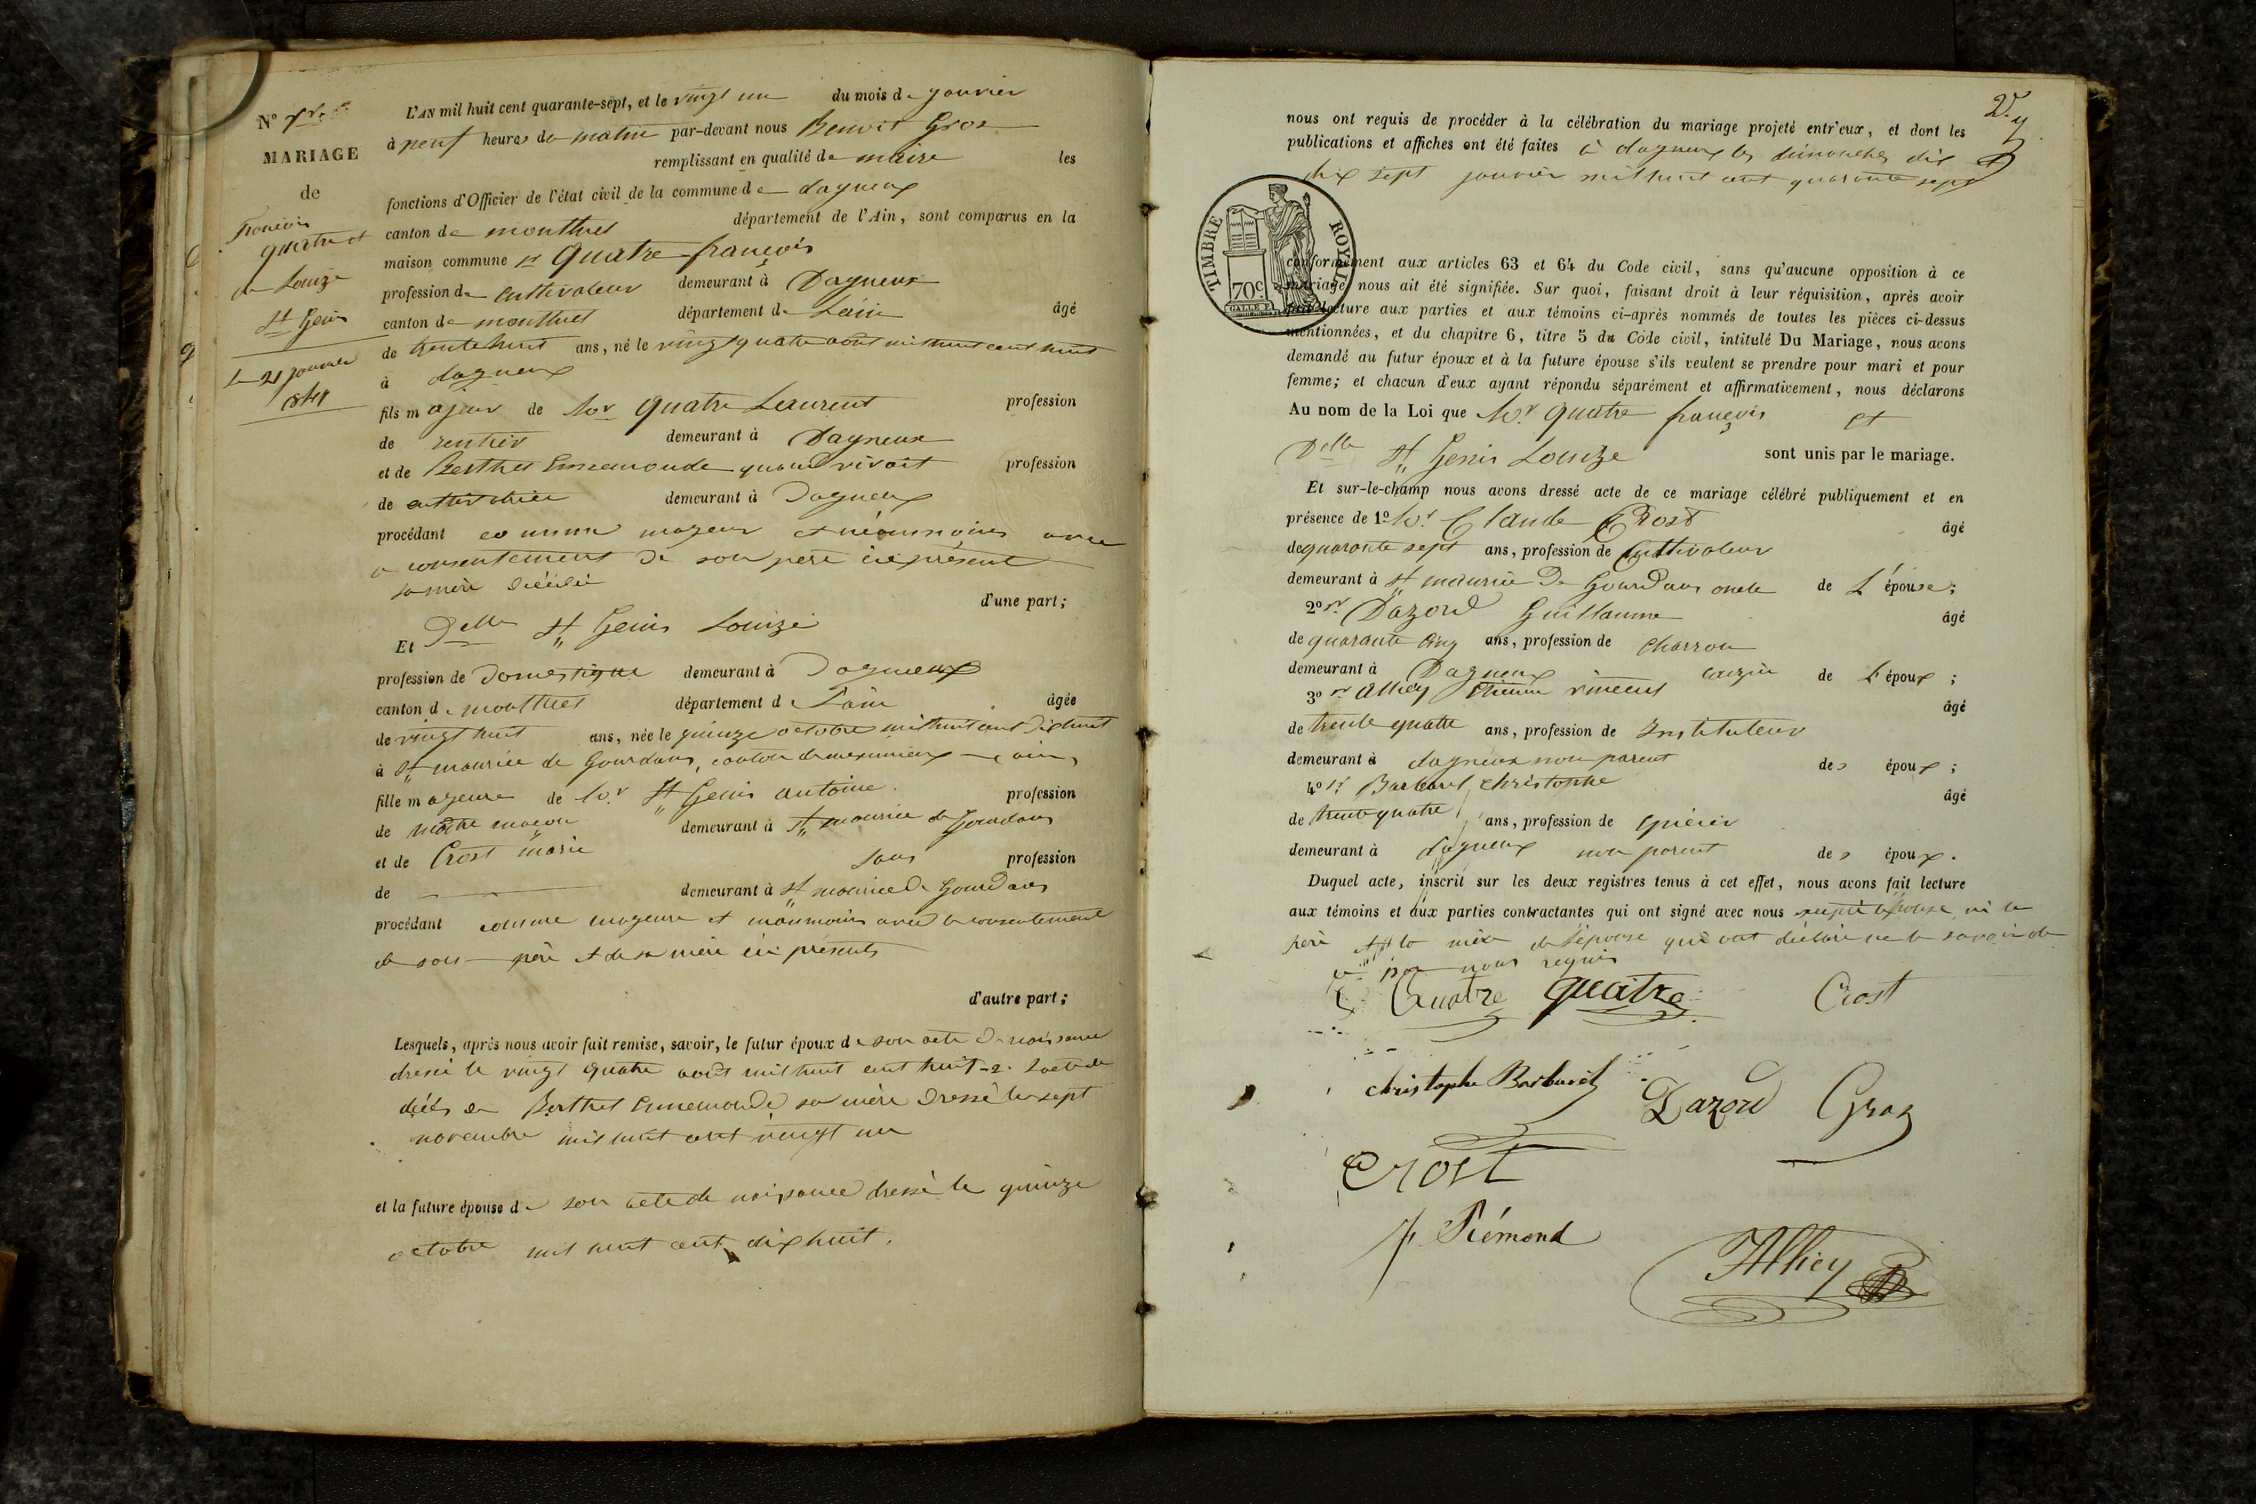 N° 1re
MARIAGE
de
François
quatre et
de Louize
St Genis
Le 21 janvier
1847
L'AN mil huit cent quarante-sept, et le vingt un du mois de janvier
à neuf heures du matin par-devant nous Benoit Groz
remplissant en qualité de maire les
fonctions d'Officier de l'état civil de la commune de dagneux
canton de montluel département de l'Ain, sont comparus en la
maison commune sr quatre françois
profession de cultivateur demeurant à Dagneux
canton de montluel département de L'ain âgé
de trente huit ans, né le vingt quatre août mil huit cent huit
à dagneux
fils majeur de Sr quatre Laurent profession
de rentier demeurant à Dagneux
et de Berthet Ennemonde quand vivait profession
de cultivatrice demeurant à Dagneux
procédant comme majeur et néanmoins avec
le consentement de son père ici présent
sa mère décédée
d'une part;
Et Delle St Genis Louize
profession de Domestique demeurant à Dagneux
canton de montluel département de L'ain âgée
de vingt huit ans, née le quinze octobre mil huit cent dix huit
à St maurice de Gourdans, canton de meximieux (ain)
fille majeure de Sr St Genis antoine profession
de maître maçon demeurant à St maurice de Gourdans
et de Crost marie sans profession
de demeurant à St maurice de Gourdans
procédant comme majeure et néanmoins avec le consentement
de son père et de sa mère ici présents
d'autre part;
Lesquels, après nous avoir fait remise, savoir, le futur époux de son acte de naissance
dressé le vingt quatre août mil huit cent huit 2° L'acte de
décès de Berthet Ennemonde sa mère dressé le sept
novembre mil huit cent vingt un
et la future épouse de son acte de naissance dressé le quinze
octobre mil huit cent dix huit.
nous ont requis de procéder à la célébration du mariage projeté entr'eux, et dont les
publications et affiches ont été faites à dagneux les dimanches dix et
dix sept janvier mil huit cent quarante sept
TIMBRE ROYAL
70c
conformément aux articles 63 et 64 du Code civil, sans qu'aucune opposition à ce
mariage nous ait été signifiée. Sur quoi, faisant droit à leur réquisition, après avoir
fait lecture aux parties et aux témoins ci-après nommés de toutes les pièces ci-dessus
mentionnées, et du chapitre 6, titre 5 du Code civil, intitulé Du Mariage, nous avons
demandé au futur époux et à la future épouse s'ils veulent se prendre pour mari et pour
femme; et chacun d'eux ayant répondu séparément et affirmativement, nous déclarons
Au nom de la Loi que Sr. quatre françois et
Delle St Genis Louize sont unis par le mariage.
Et sur-le-champ nous avons dressé acte de ce mariage célébré publiquement et en
présence de 1° Sr Claude Crost âgé
de quarante sept ans, profession de Cultivateur
demeurant à St maurice de Gourdans oncle de L'épouse;
2° sr Dazord Guillaume âgé
de quarante cinq ans, profession de charron
demeurant à Dagneux couzin de L'époux;
3° sr Alhiey Etienne vincent âgé
de trente quatre ans, profession de Instituteur
demeurant à dagneux non parent des époux;
4° sr Barbaret christophe âgé
de trente quatre ans, profession de epicier
demeurant à dagneux non parent des époux.
Duquel acte, inscrit sur les deux registres tenus à cet effet, nous avons fait lecture
aux témoins et aux parties contractantes qui ont signé avec nous excepté l'épouse, ni le
père et la mère de l'épouse qui ont déclaré ne le savoir de
ce par nous requis
Quatre quatre Crost
christophe Barbaret Dazord Groz
Crost
Piémond
Alhiey